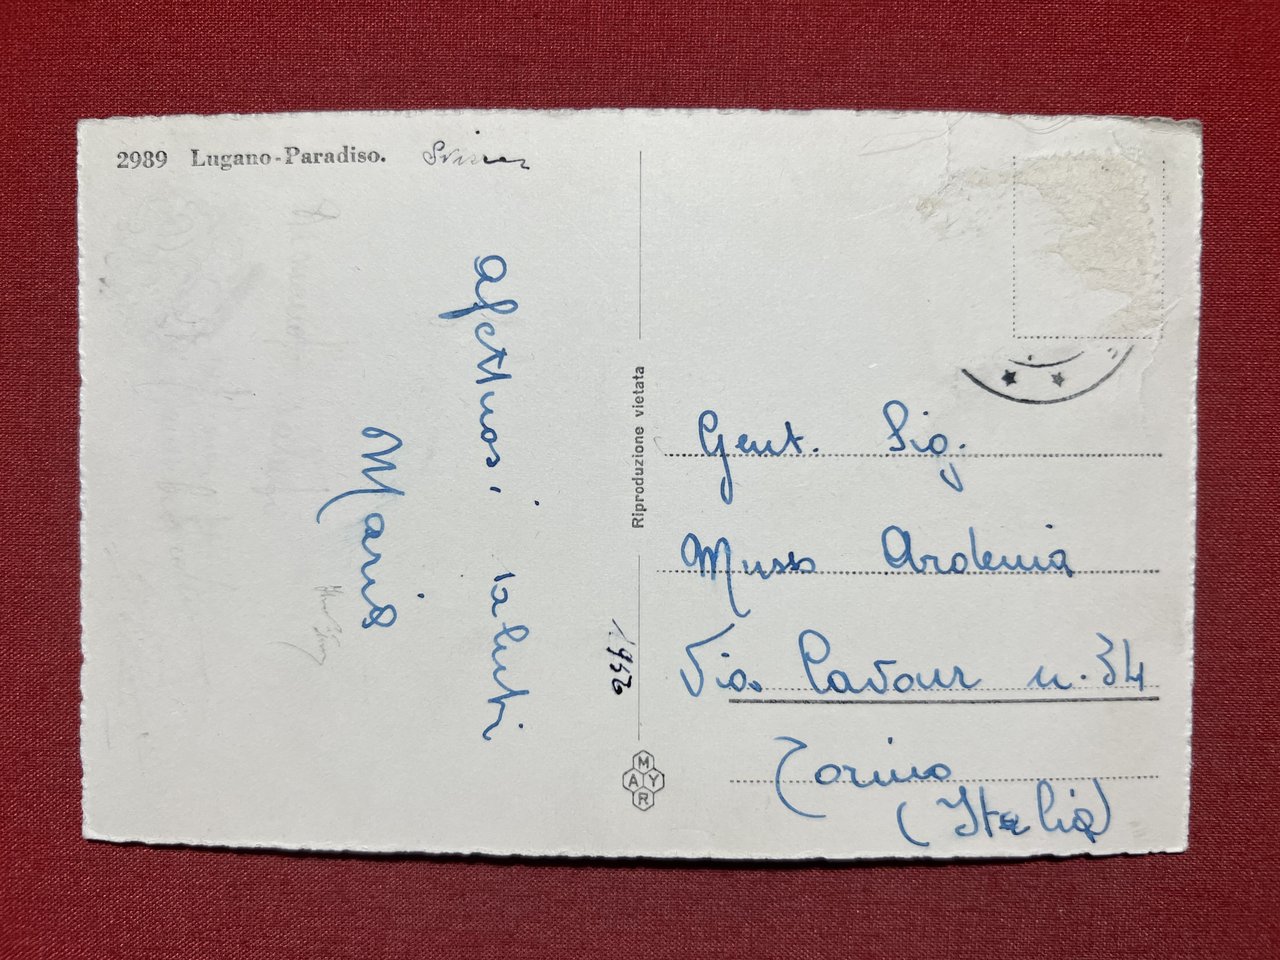 2989 Lugano-Paradiso.
affettuosi saluti
Mario
Riproduzione vietata
MAYR
Gent. Sig.
Musso Ardenia
Via Cavour n. 34
Torino
(Italia)